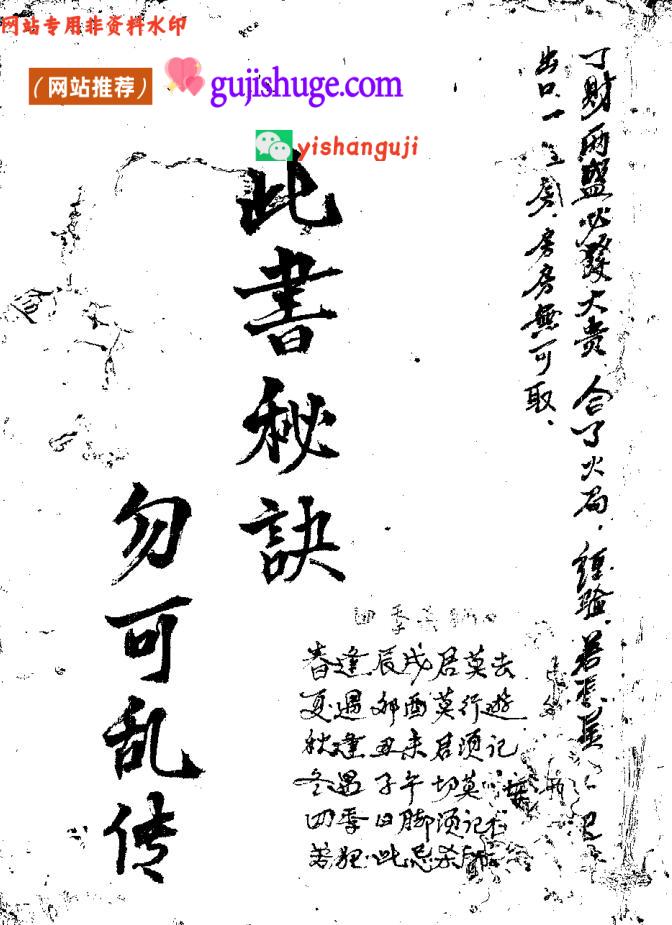 网站专用非资料水印
（网站推荐）
gujishuge.com
yishanguji
丁財兩盛必發大貴，合了火局，經驗，若
出口，一
房，房房無可取，
此書秘訣
勿可乱传
四季
春逢辰戌君莫去
夏遇卯酉莫行遊
秋逢丑未君须记
冬遇子午切莫
四季日脚须记
若犯此忌杀师